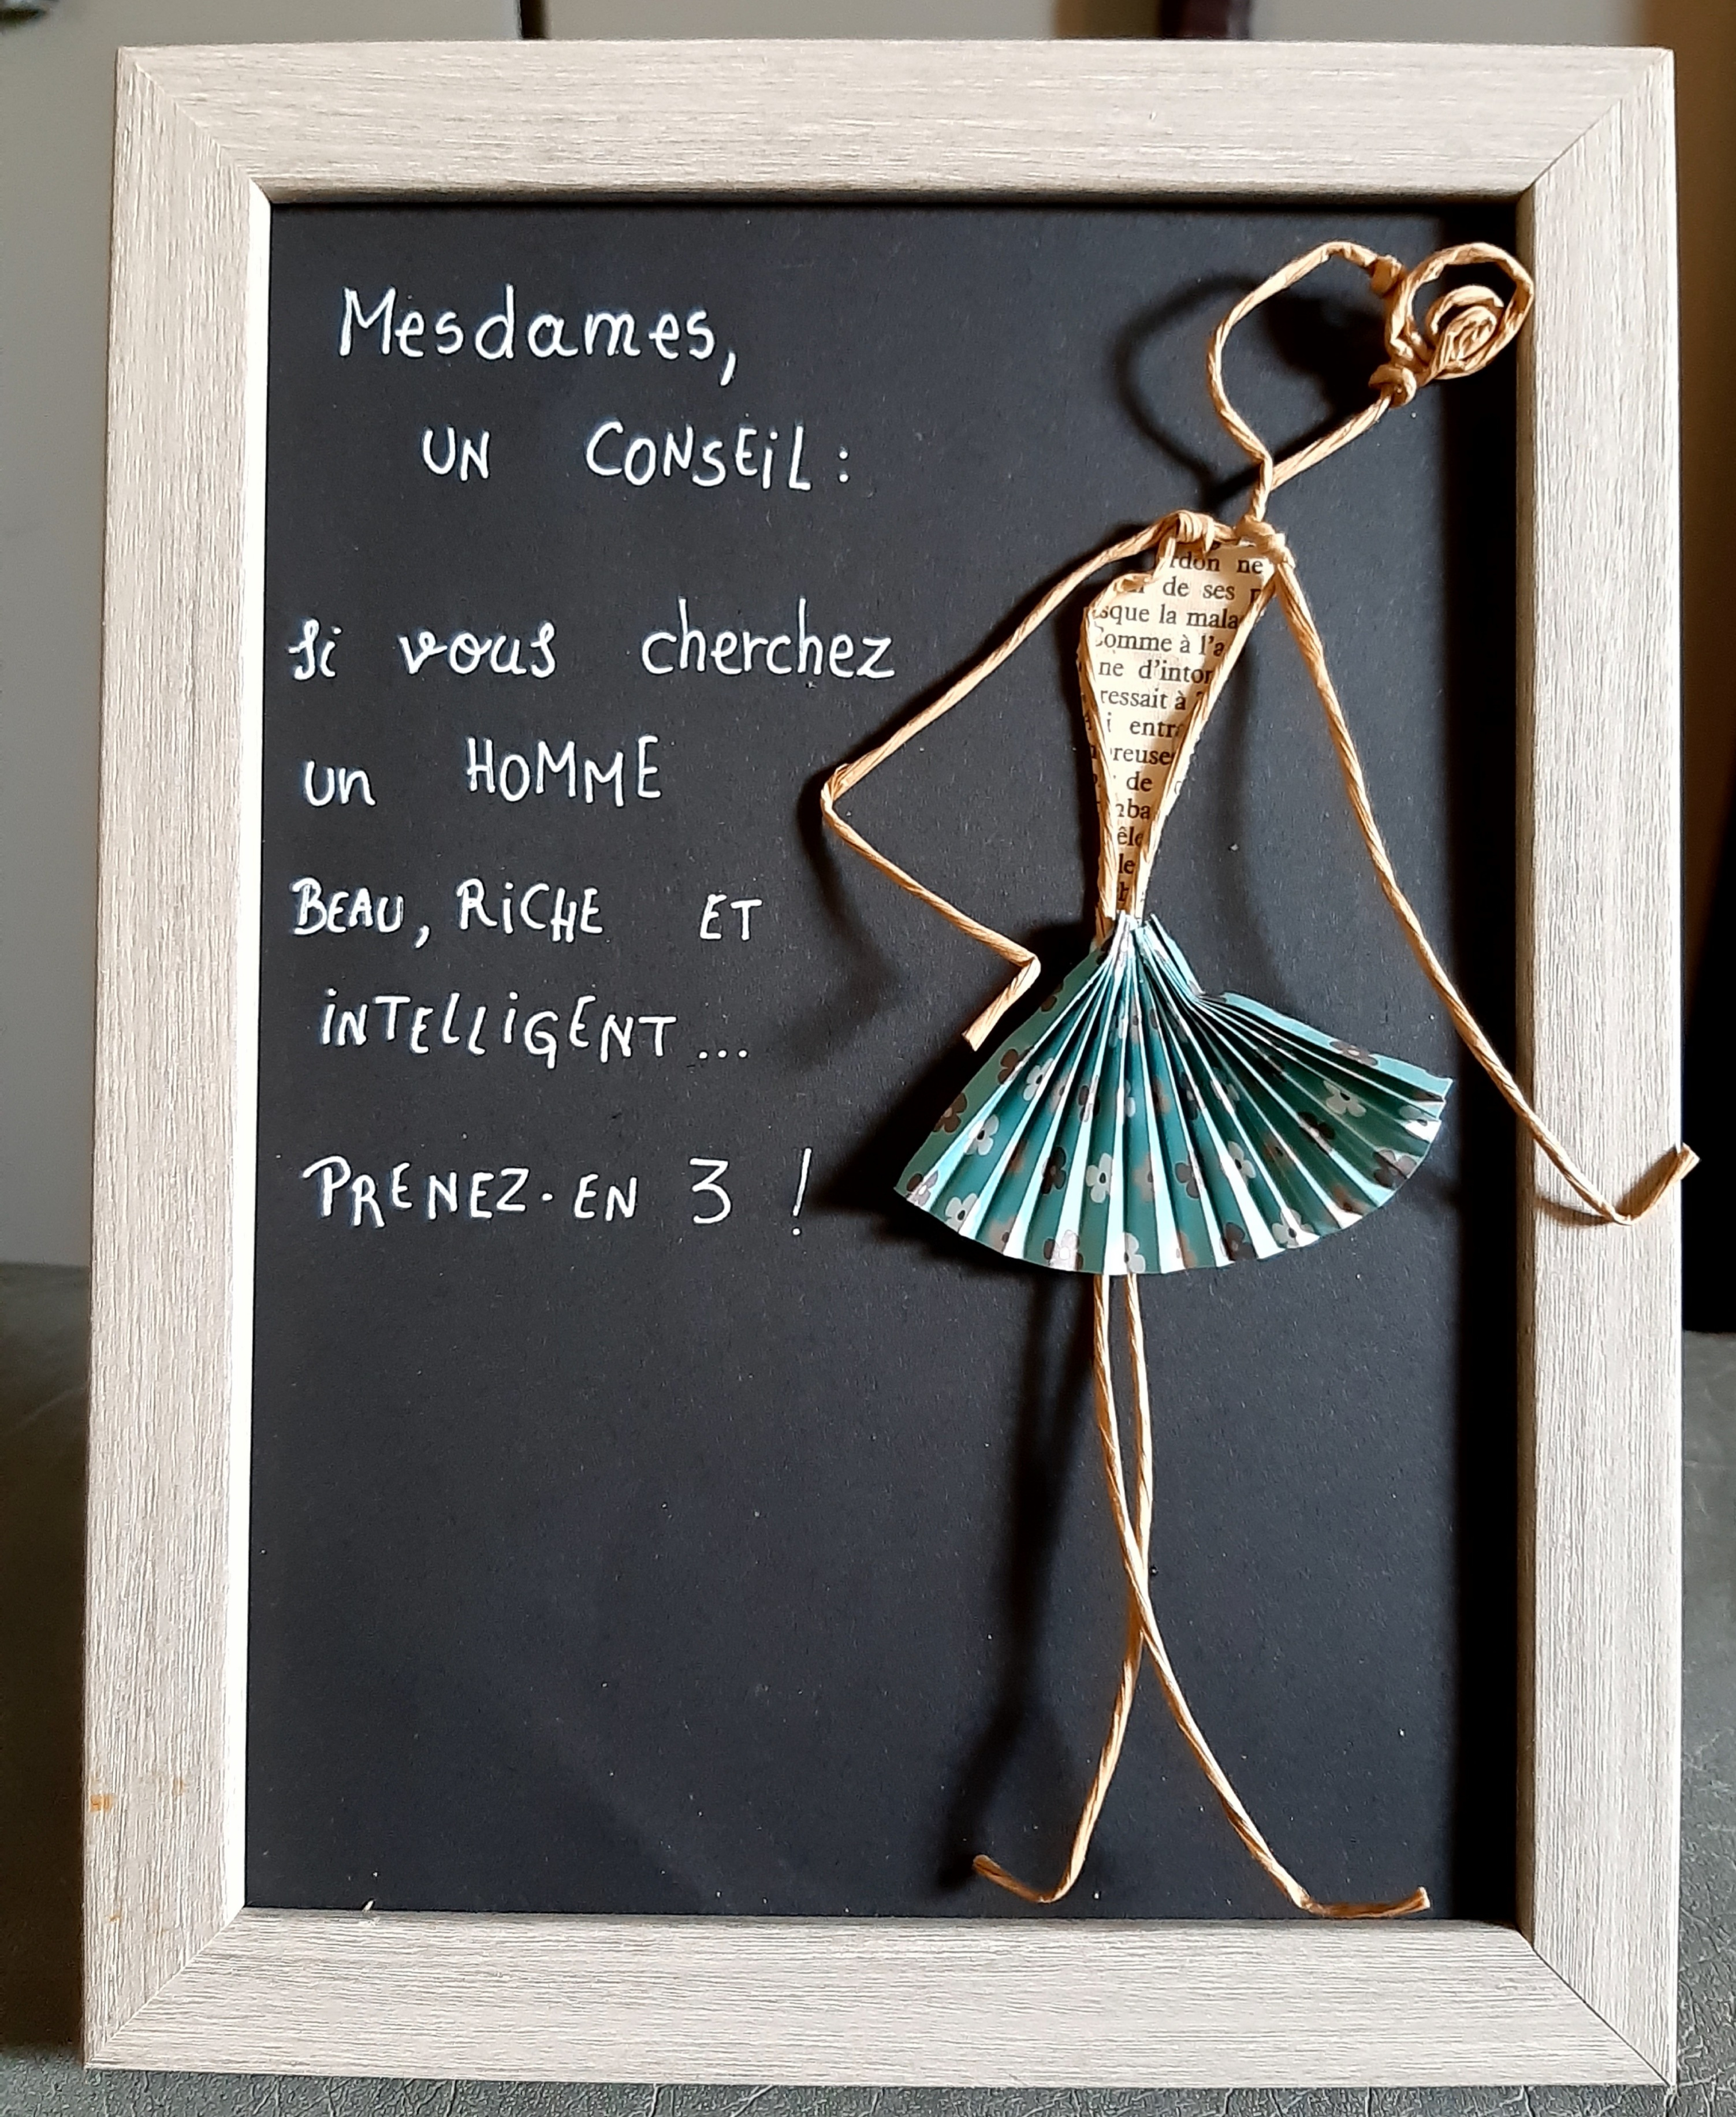 Mesdames,
UN CONSEiL :
Si vous cherchez
un HOMME
BEAU, RiCHE ET
iNTELLiGENT...
PRENEZ-EN 3 !
rdon ne
de ses
sque la mala
Comme à l'a
ne d'inton
ressait à
i entr
breuse
de
mba
êle
le